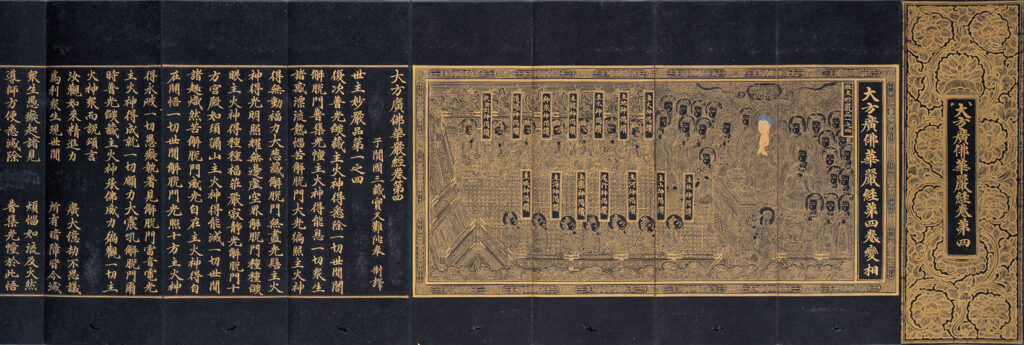 大方廣佛華嚴經卷第四
大方廣佛華嚴經第四卷變相
大方廣佛華嚴經卷第四
于闐國三藏實叉難陀奉 制譯
世主妙嚴品第一之四
復次普光焰藏主火神得悉除一切世間闇
解脫門普集光幢主火神得能息一切衆生
諸惑漂流熱惱苦解脫門大光徧照主火神
得無動福力大悲藏解脫門無盡光髻主火
神得光明照耀無邊虛空界解脫門種種焰
眼主火神得種種福莊嚴寂靜光解脫門十
方宮殿如須彌山主火神得能滅一切世間
諸趣熾然苦解脫門威光自在主火神得自
在開悟一切世間解脫門光照十方主火神
得永破一切愚癡執著見解脫門雷音電光
主火神得成就一切願力大震吼解脫門爾
時普光焰藏主火神承佛威力徧觀一切主
火神衆而說頌言
汝觀如來精進力 廣大億劫不思議
爲利衆生現世間 所有暗障皆令滅
衆生愚癡起諸見 煩惱如流及火然
導師方便悉滅除 普集光幢於此悟